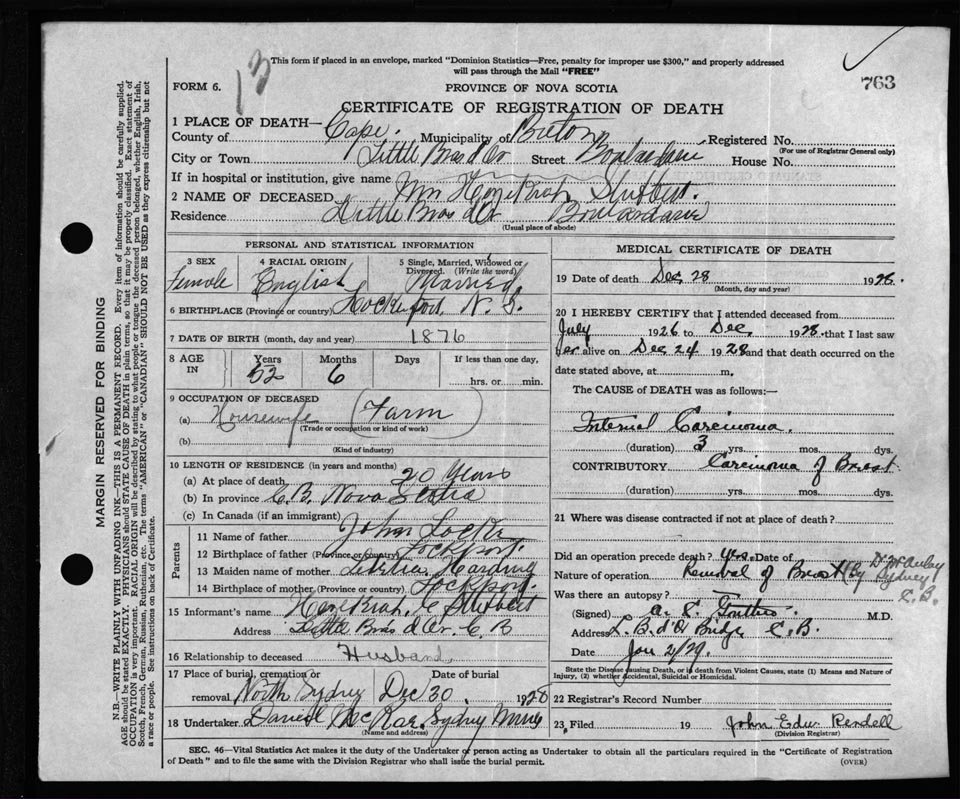 13
This form if placed in an envelope, marked "Dominion Statistics—Free, penalty for improper use $300," and properly addressed
will pass through the Mail "FREE"
763
FORM 6.
PROVINCE OF NOVA SCOTIA
CERTIFICATE OF REGISTRATION OF DEATH
1 PLACE OF DEATH—
County of Cape Municipality of Breton Registered No.
(For use of Registrar General only)
City or Town Little Bras d'Or Street Boulardarie House No.
If in hospital or institution, give name
2 NAME OF DECEASED Mrs Hezekiah Stubbert.
Residence Little Bras d'Or Boulardarie
(Usual place of abode)
PERSONAL AND STATISTICAL INFORMATION
3 SEX 4 RACIAL ORIGIN 5 Single, Married, Widowed or Divorced. (Write the word)
Female English Married
6 BIRTHPLACE (Province or country) Lockeport, N. S.
7 DATE OF BIRTH (month, day and year) 1876
8 AGE IN Years Months Days If less than one day,
52 6 hrs. or min.
9 OCCUPATION OF DECEASED
(a) Housewife (Farm)
(Trade or occupation or kind of work)
(b)
(Kind of industry)
10 LENGTH OF RESIDENCE (in years and months)
(a) At place of death 20 Years
(b) In province C.B. Nova Scotia
(c) In Canada (if an immigrant)
Parents
11 Name of father John Locke
12 Birthplace of father (Province or country) Lockport.
13 Maiden name of mother Letetia Harding
14 Birthplace of mother (Province or country) Lockport.
15 Informant's name Hezekiah Stubbert
Address Little Bras d'Or. C. B
16 Relationship to deceased Husband
17 Place of burial, cremation or removal Date of burial
North Sydney Dec 30 1928
18 Undertaker Daniel McRae, Sydney Mines
(Name and address)
MEDICAL CERTIFICATE OF DEATH
19 Date of death Dec 28 1928.
(Month, day and year)
20 I HEREBY CERTIFY that I attended deceased from
July 1926 to Dec. 1928. that I last saw
her alive on Dec 24 1928 and that death occurred on the
date stated above, at m.
The CAUSE of DEATH was as follows:—
Internal Carcinoma.
(duration) 3 yrs. mos. dys.
CONTRIBUTORY Carcinoma of Breast
(duration) yrs. mos. dys.
21 Where was disease contracted if not at place of death?
Did an operation precede death? yes. Date of
Nature of operation Removal of Breast By Dr McAulay Sydney C.B.
Was there an autopsy?
(Signed) M.D.
Address L. B. d'Or Bridge C.B.
Date Jan 2/29.
State the Disease causing Death, or in death from Violent Causes, state (1) Means and Nature of
Injury, (2) whether Accidental, Suicidal or Homicidal.
22 Registrar's Record Number
23 Filed 19 John Edw. Rendell
(Division Registrar)
SEC. 46—Vital Statistics Act makes it the duty of the Undertaker or person acting as Undertaker to obtain all the particulars required in the "Certificate of Registration
of Death" and to file the same with the Division Registrar who shall issue the burial permit.
(OVER)
MARGIN RESERVED FOR BINDING
N.B.—WRITE PLAINLY WITH UNFADING INK—THIS IS A PERMANENT RECORD. Every item of information should be carefully supplied.
AGE should be stated EXACTLY. PHYSICIANS should STATE CAUSE OF DEATH in plain terms, so that it may be properly classified. Exact statement of
OCCUPATION is very important. RACIAL ORIGIN will be described by stating to what people or tongue the deceased person belonged, whether English, Irish,
Scotch, French, German, Russian, Ruthenian, etc. The terms "AMERICAN" or "CANADIAN" SHOULD NOT BE USED as they express citizenship but not
a race or people. See instructions on back of Certificate.